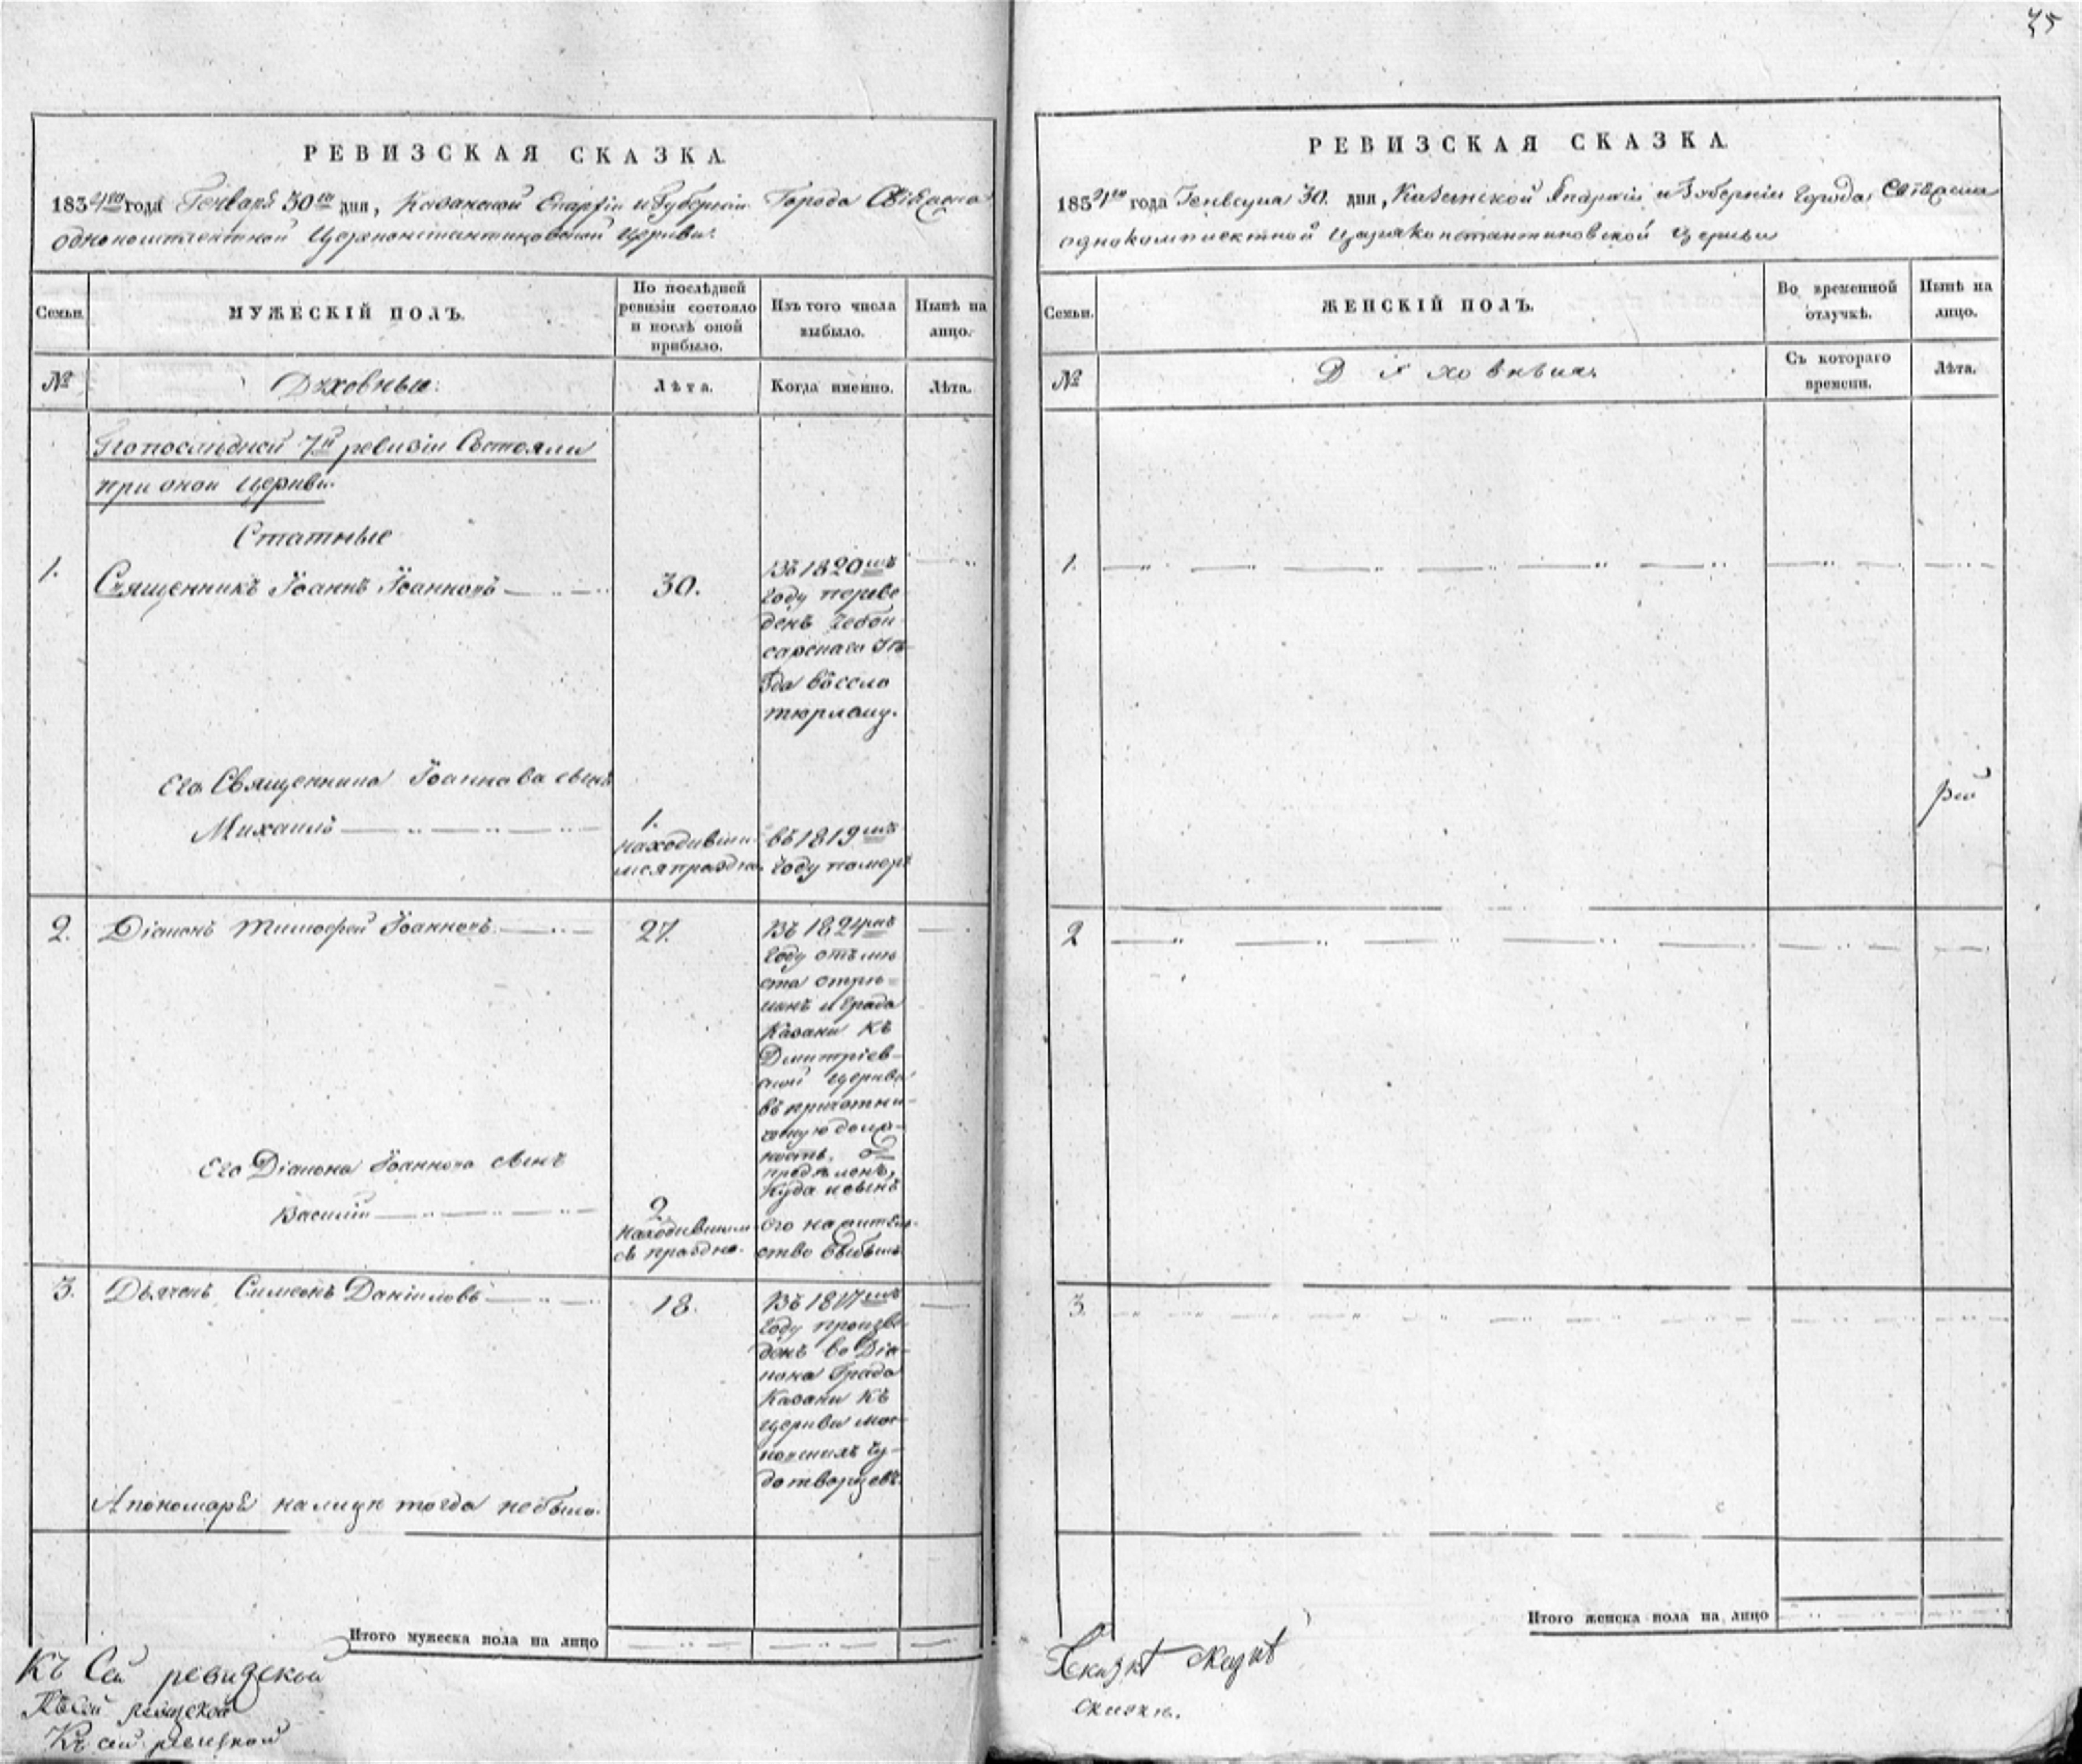 75
РЕВИЗСКАЯ СКАЗКА.
1834го года Генваря 30го дня, Казанской Епархіи и Губерніи Города Свіяжска
однокомплектной Цареконстантиновской Церкви.
Семьи.
МУЖЕСКІЙ ПОЛЪ.
По послѣдней ревизіи состояло и послѣ оной прибыло.
Изъ того числа выбыло.
Нынѣ на лицо.
№
Духовные.
Лѣта.
Когда именно.
Лѣта.
По последней 7й ревизіи Состояли
при оной Церкви.
Статные
1.
Священникъ Іоаннъ Іоанновъ
30.
Въ 1820мъ
году переве
денъ Чебок
сарскаго Уѣ
зда въ село
Его Священника Іоаннова сынъ
Михаилъ
1.
находивши
мся праздно.
въ 1819мъ
году померъ
2.
Діаконъ Тимофей Іоанновъ
27.
Въ 1824мъ
году отъ мѣ
ста отрѣ
шенъ и града
Казани къ
Дмитріев
ской Церкви
въ причетни
ческую долж
ность, о
предѣленъ,
куда и сынъ
Его Діакона Іоаннова сынъ
Василій
2.
находившим
ся праздно.
его на житель
ство выбылъ
3.
Дьячекъ Симеонъ Даніиловъ
18.
Въ 1817мъ
году произве
денъ во Діа
кона Града
Казани къ
Церкви Мос
ковскихъ Чу
дотворцевъ.
А пономаря на лицо тогда не было.
Итого мужеска пола на лицо
Къ Сей ревизской
Къ Сей ревизской
Къ сей ревизской
РЕВИЗСКАЯ СКАЗКА.
1834го года Генваря 30. дня, Казанской Епархіи и Губерніи города Свіяжска
однокомплектной Цареконстантиновской Церкви
Семьи.
ЖЕНСКІЙ ПОЛЪ.
Во временной отлучкѣ.
Нынѣ на лицо.
№
Духовныя.
Съ котораго времени.
Лѣта.
1.
2
3.
Итого женска пола на лицо
сказкѣ.